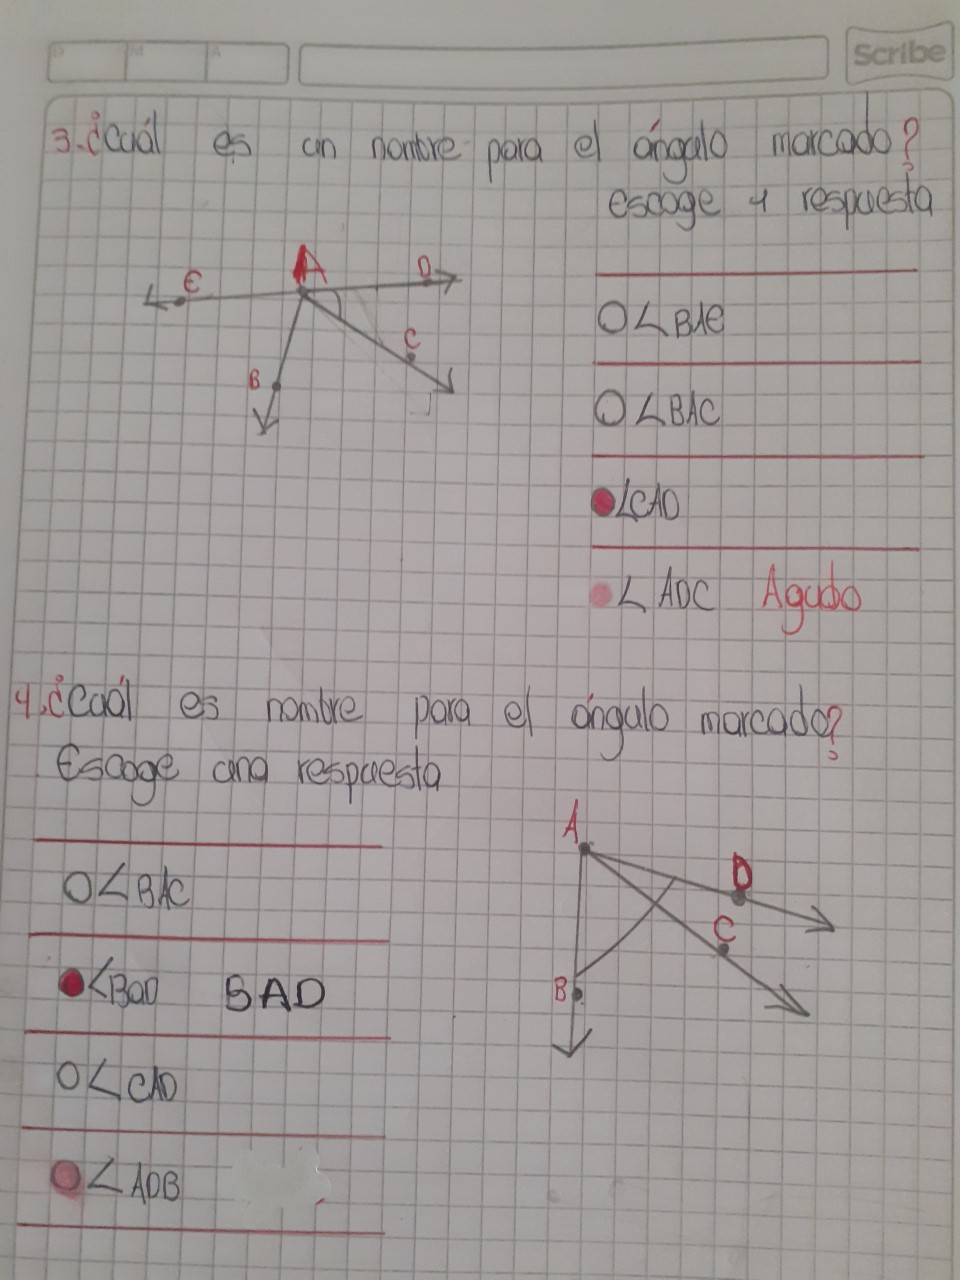 D M A
Scribe
3. ¿Cuál es un nombre para el ángulo marcado?
escoge 1 respuesta
E A D
C
B
O ∠BAE
O ∠BAC
∠CAD
∠ADC Agudo
4. ¿Cuál es nombre para el ángulo marcado?
Escoge una respuesta
A
D
C
B
O ∠BAC
∠BaD BAD
O ∠CAD
∠ADB